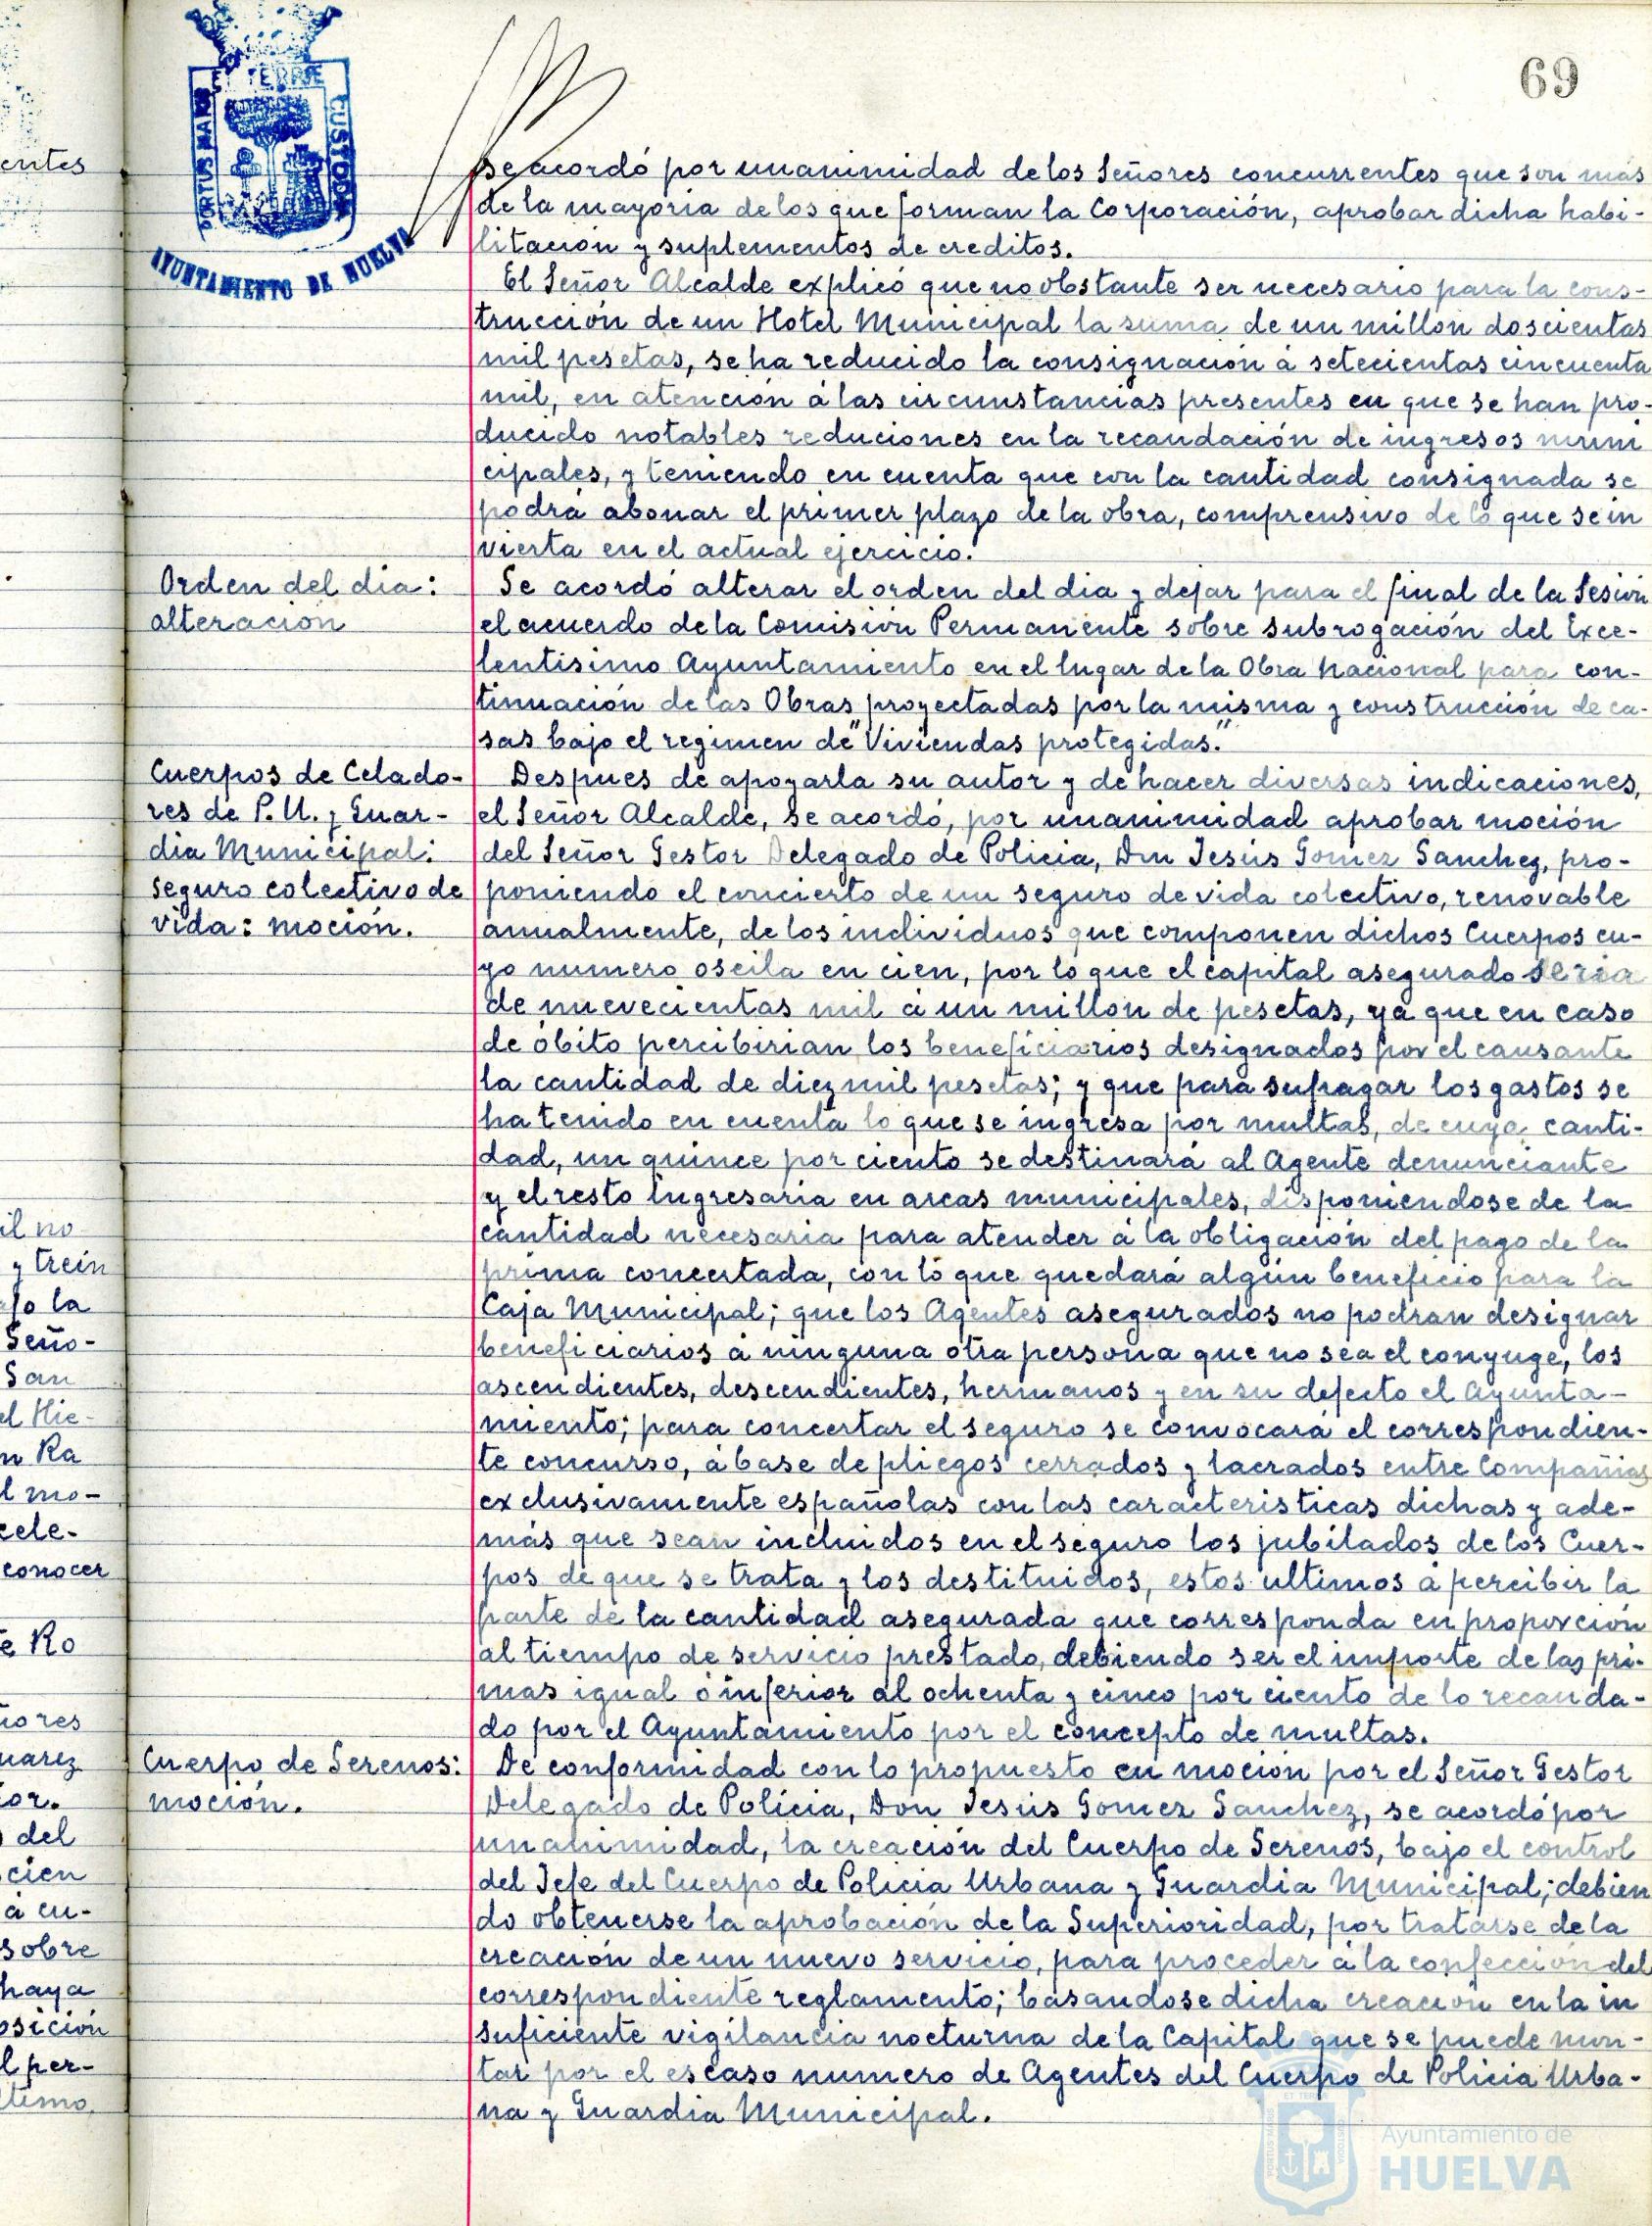 69
PORTUS MARIS ET TERRÆ CUSTODIA
AYUNTAMIENTO DE HUELVA
se acordó por unanimidad de los Señores concurrentes que son más
de la mayoria de los que forman la Corporación, aprobar dicha habi-
litación y suplementos de creditos.
El Señor Alcalde explicó que no obstante ser necesario para la cons-
trucción de un Hotel Municipal la suma de un millon doscientas
mil pesetas, se ha reducido la consignación á setecientas cincuenta
mil, en atención á las circunstancias presentes en que se han pro-
ducido notables reduciones en la recaudación de ingresos muni
cipales, y teniendo en cuenta que con la cantidad consignada se
podrá abonar el primer plazo de la obra, comprensivo de lo que se in
vierta en el actual ejercicio.
Orden del dia:
alteración
Se acordó alterar el orden del dia y dejar para el final de la Sesión
el acuerdo de la Comisión Permanente sobre subrogación del Exce-
lentisimo Ayuntamiento en el lugar de la Obra Nacional para con-
tinuación de las Obras proyectadas por la misma y construcción de ca-
sas bajo el regimen de "Viviendas protegidas."
Cuerpos de Celado-
res de P. U. y Guar-
dia Municipal:
seguro colectivo de
vida: moción.
Despues de apoyarla su autor y de hacer diversas indicaciones,
el Señor Alcalde, se acordó, por unanimidad aprobar moción
del Señor Gestor Delegado de Policia, Don Jesús Gomez Sanchez, pro-
poniendo el concierto de un seguro de vida colectivo, renovable
anualmente, de los individuos que componen dichos Cuerpos cu-
yo numero oscila en cien, por lo que el capital asegurado seria
de nuevecientas mil á un millon de pesetas, ya que en caso
de óbito percibirian los beneficiarios designados por el causante
la cantidad de diez mil pesetas; y que para sufragar los gastos se
ha tenido en cuenta lo que se ingresa por multas, de cuya canti-
dad, un quince por ciento se destinará al Agente denunciante
y el resto ingresaria en arcas municipales, disponiendose de la
cantidad necesaria para atender á la obligación del pago de la
prima concertada, con lo que quedará algún beneficio para la
Caja Municipal; que los Agentes asegurados no podran designar
beneficiarios á ninguna otra persona que no sea el conyuge, los
ascendientes, descendientes, hermanos y en su defecto el Ayunta-
miento; para concertar el seguro se convocará el correspondien-
te concurso, á base de pliegos cerrados y lacrados entre Compañias
exclusivamente españolas con las caracteristicas dichas y ade-
más que sean incluidos en el seguro los jubilados de los Cuer-
pos de que se trata y los destituidos, estos ultimos á percibir la
parte de la cantidad asegurada que corresponda en proporción
al tiempo de servicio prestado, debiendo ser el importe de las pri-
mas igual ó inferior al ochenta y cinco por ciento de lo recauda-
do por el Ayuntamiento por el concepto de multas.
Cuerpo de Serenos:
moción.
De conformidad con lo propuesto en moción por el Señor Gestor
Delegado de Policia, Don Jesús Gomez Sanchez, se acordó por
unanimidad, la creación del Cuerpo de Serenos, bajo el control
del Jefe del Cuerpo de Policia Urbana y Guardia Municipal; debien
do obtenerse la aprobación de la Superioridad, por tratarse de la
creación de un nuevo servicio, para proceder á la confección del
correspondiente reglamento; basandose dicha creación en la in
suficiente vigilancia nocturna de la Capital que se puede mon-
tar por el escaso numero de Agentes del Cuerpo de Policia Urba-
na y Guardia Municipal.
entes
il no
y trein
ajo la
Seño-
San
el Hie-
n Ra
l mo-
cele-
conocer
e Ro
ñores
uarez
or.
del
cien
á cu-
sobre
haya
osición
l per-
ltimo
Ayuntamiento de
HUELVA